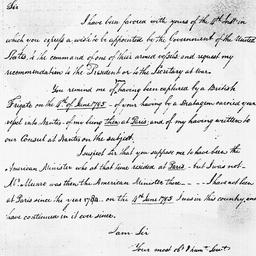 Sir
I have been favored with yours of the 4th Inst. in
which you express a wish to be appointed by the Government of the United
States, to the command of one of their armed vessels and request my
recommendation to the President or to the Secretary at war.
You remind me of having been captured by a British
Frigate on the 8th of June 1795 - of your having by a Stratagem carried your
vessel into Nantes - of my being then at Paris, and of my having written to
our Consul at Nantes on the subject.
I suspect Sir that you suppose me to have been the
American Minister who at that time resided at Paris - but I was not.
Mr. Munro was then the American Minister there - - - I have not been
at Paris since the year 1784. on the 4th June 1795 I was in this country, and
have continued in it ever since.
I am Sir
Your most obt. & hum. Servt.